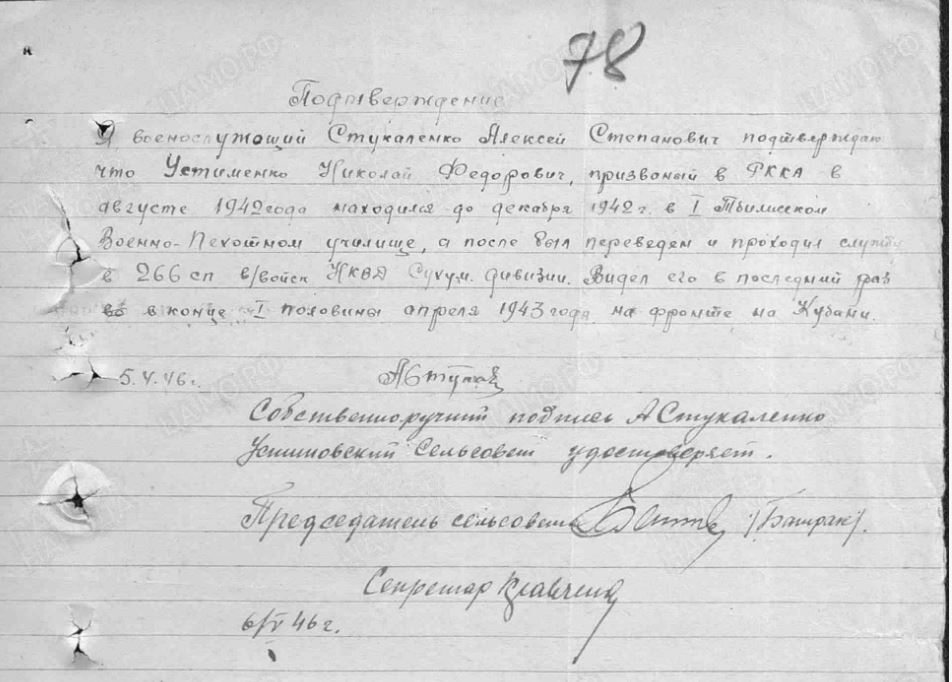 78
Подтверждение
Я военослужащий Стукаленко Алексей Степанович подтверждаю
что Устименко Николай Федорович, призваный в РККА в
августе 1942 года находился до декабря 1942 г. в I Тбилисском
Военно-Пехотном училище, а после был переведен и проходил службу
в 266 сп в/войск НКВД Сухум. дивизии. Видел его в последний раз
в конце I половины апреля 1943 года на фронте на Кубани.
5.V.46 г.
Собственоручний подпись А Стукаленко
Сельсовет удостоверяет.
Председатель сельсовета /Батрак/.
Секретар
6/V 46 г.
ЦАМО.РФ